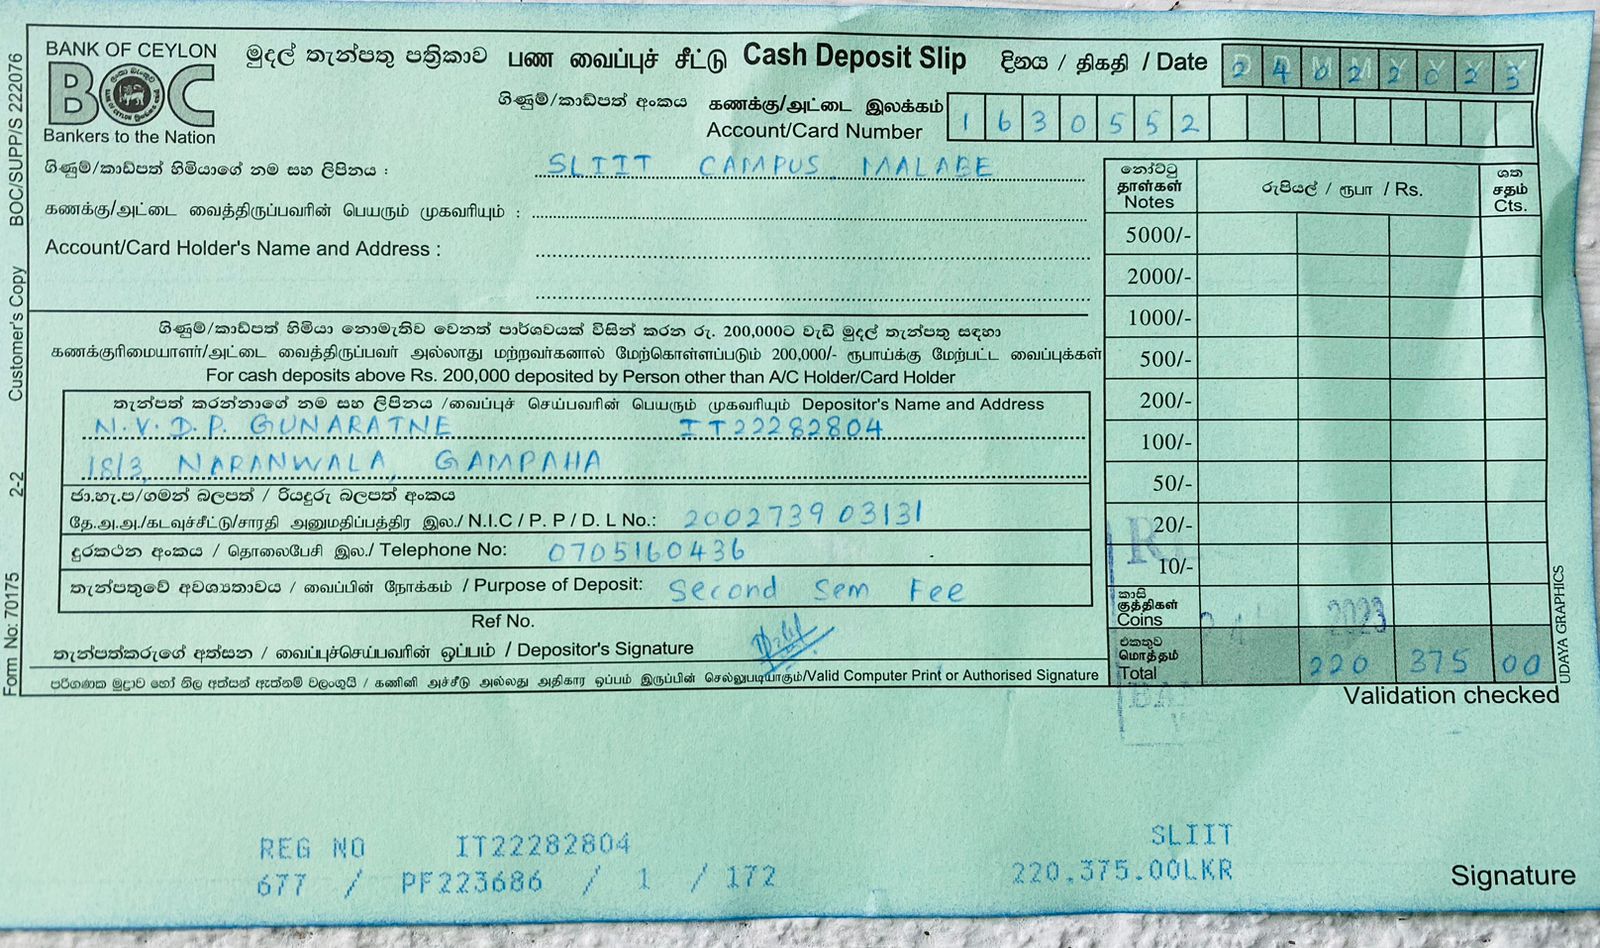 BANK OF CEYLON
BOC
Bankers to the Nation
මුදල් තැන්පතු පත්‍රිකාව பண வைப்புச் சீட்டு Cash Deposit Slip
දිනය / திகதி / Date 24022023
ගිණුම්/කාඩ්පත් අංකය கணக்கு/அட்டை இலக்கம்
Account/Card Number 1630552
ගිණුම්/කාඩ්පත් හිමියාගේ නම සහ ලිපිනය : SLIIT CAMPUS, MALABE
கணக்கு/அட்டை வைத்திருப்பவரின் பெயரும் முகவரியும் :
Account/Card Holder's Name and Address :
ගිණුම්/කාඩ්පත් හිමියා නොමැතිව වෙනත් පාර්ශවයක් විසින් කරන රු. 200,000ට වැඩි මුදල් තැන්පතු සඳහා
கணக்குரிமையாளர்/அட்டை வைத்திருப்பவர் அல்லாது மற்றவர்களால் மேற்கொள்ளப்படும் 200,000/- ரூபாய்க்கு மேற்பட்ட வைப்புக்கள்
For cash deposits above Rs. 200,000 deposited by Person other than A/C Holder/Card Holder
තැන්පත් කරන්නාගේ නම සහ ලිපිනය /வைப்புச் செய்பவரின் பெயரும் முகவரியும் Depositor's Name and Address
N.V.D.P. GUNARATNE IT22282804
18/3, NARANWALA, GAMPAHA
ජා.හැ.ප/ගමන් බලපත් / රියදුරු බලපත් අංකය
தே.அ.அ./கடவுச்சீட்டு/சாரதி அனுமதிப்பத்திர இல./ N.I.C / P. P / D. L No.: 200273903131
දුරකථන අංකය / தொலைபேசி இல./ Telephone No: 0705160436
තැන්පතුවේ අවශ්‍යතාවය / வைப்பின் நோக்கம் / Purpose of Deposit: Second Sem Fee
Ref No.
තැන්පත්කරුගේ අත්සන / வைப்புச்செய்பவரின் ஒப்பம் / Depositor's Signature
පරිගණක මුද්‍රාව හෝ නිල අත්සන් ඇත්නම් වලංගුයි / கணினி அச்சீடு அல்லது அதிகார ஒப்பம் இருப்பின் செல்லுபடியாகும்/Valid Computer Print or Authorised Signature
නෝට්ටු
தாள்கள்
Notes
රුපියල් / ரூபா / Rs.
ශත
சதம்
Cts.
5000/-
2000/-
1000/-
500/-
200/-
100/-
50/-
20/-
10/-
කාසි
குத்திகள்
Coins
2023
එකතුව
மொத்தம்
Total 220 375 00
Validation checked
REG NO IT22282804 SLIIT
677 / PF223686 / 1 / 172 220,375.00LKR
Signature
Form No: 70175 2-2 Customer's Copy BOC/SUPP/S 222076
UDAYA GRAPHICS